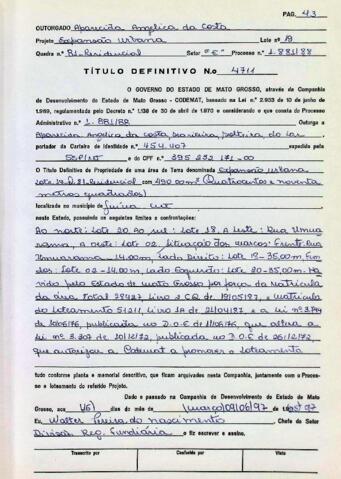 PAG. 43
OUTORGADO Aparecida Angelica da Costa
Projeto Expansão Urbana Lote n.o 19
Quadra n.o 81-Residencial Setor "E" Processo n.o 1.881/88
TÍTULO DEFINITIVO N.o 4711
O GOVERNO DO ESTADO DE MATO GROSSO, através da Companhia
de Desenvolvimento do Estado de Mato Grosso - CODEMAT, baseado na Lei n.o 2.933 de 10 de junho de
1.969, regulamentada pelo Decreto n.o 1.138 de 30 de abril de 1970 e considerando o que consta do Processo
Administrativo n.o 1.881/88 Outorga a
Aparecida Angelica da Costa, brasileira, solteira, do lar
portador da Carteira de Identidade n.o 454.407 expedida pela
SSP/MT e do CPF n.o 395 232 171-00
O Título Definitivo de Propriedade de uma área de Terra denominada Expansão Urbana
Lote 19 Q.81-Residencial com 490,00 m² (Quatrocentos e noventa
metros quadrados)
localizada no município de Juína MT
neste Estado, possuindo os seguintes limites e confrontações:
Ao norte: Lote 20. Ao sul: Lote 18. A Leste: Rua Umua
rama, a oeste: Lote 02. Situação dos marcos: Frente: Rua
Umuarama - 14.00m, Lado Direito: Lote 18-35,00m, Fun
dos: Lote 02-14.00m, Lado Esquerdo: Lote 20-35.00m. Ha
vido pelo Estado de Mato Grosso por força da matrícula
da área total Livro 2 CQ de 19/05/87, e matrícula
do Loteamento 51211, Livro 1A de 21/04/87 e a Lei nº
10/06/76, publicada no D.O.E de 11/06/76, que altera a
Lei nº 3.307 de 10/12/72, publicada no D.O.E de 26/12/72,
que autorizou a Codemat a promover o Loteamento
tudo conforme planta e memorial descritivo, que ficam arquivados nesta Companhia, juntamente com o Proces-
so e loteamento do referido Projeto.
Dado e passado na Companhia de Desenvolvimento do Estado de Mato
Grosso, aos (06) dias do mês de (março) 09/06/97 de 97
Eu, Walter Pereira do nascimento Chefe do Setor
Divisão Reg. Fundiária o fiz escrever e assino.
Transcrito por Conferido por Visto